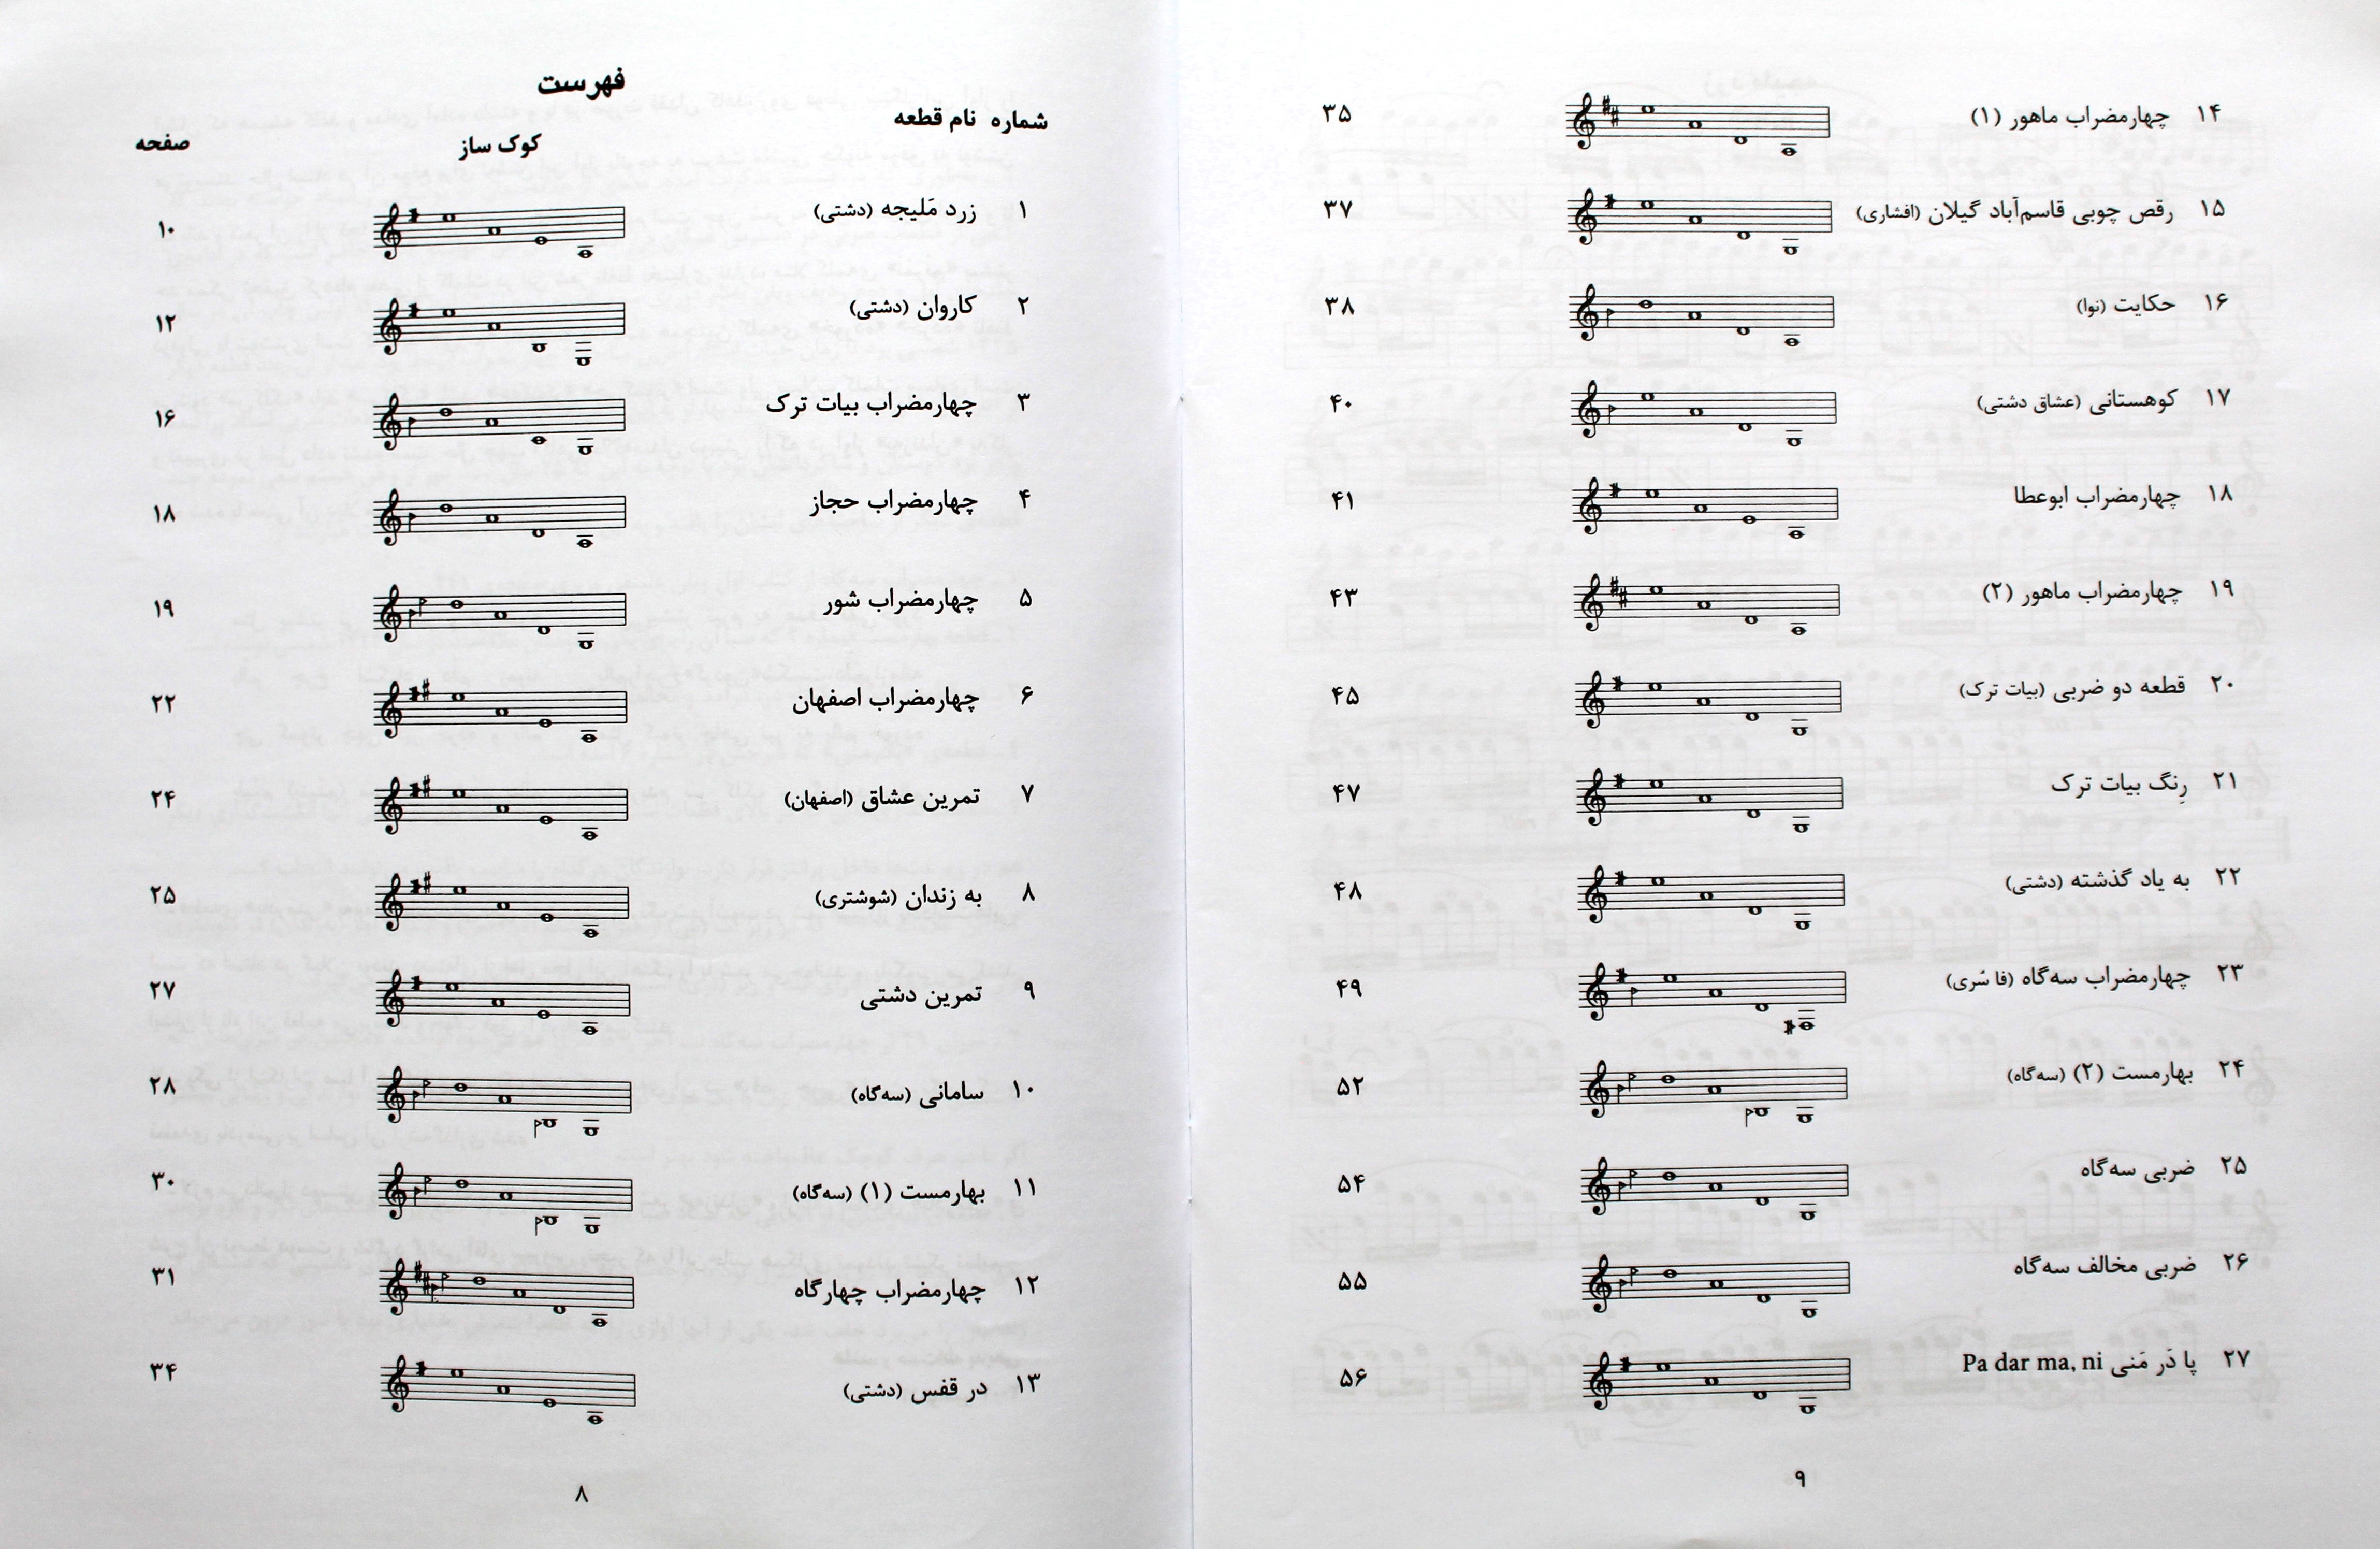 فهرست
شماره نام قطعه کوک ساز صفحه
۱ زرد مَلیجه (دشتی) ۱۰
۲ کاروان (دشتی) ۱۲
۳ چهارمضراب بیات ترک ۱۶
۴ چهارمضراب حجاز ۱۸
۵ چهارمضراب شور ۱۹
۶ چهارمضراب اصفهان ۲۲
۷ تمرین عشاق (اصفهان) ۲۴
۸ به زندان (شوشتری) ۲۵
۹ تمرین دشتی ۲۷
۱۰ سامانی (سه‌گاه) ۲۸
۱۱ بهارمست (۱) (سه‌گاه) ۳۰
۱۲ چهارمضراب چهارگاه ۳۱
۱۳ در قفس (دشتی) ۳۴
۸
۱۴ چهارمضراب ماهور (۱) ۳۵
۱۵ رقص چوبی قاسم‌آباد گیلان (افشاری) ۳۷
۱۶ حکایت (نوا) ۳۸
۱۷ کوهستانی (عشاق دشتی) ۴۰
۱۸ چهارمضراب ابوعطا ۴۱
۱۹ چهارمضراب ماهور (۲) ۴۳
۲۰ قطعه دو ضربی (بیات ترک) ۴۵
۲۱ رِنگ بیات ترک ۴۷
۲۲ به یاد گذشته (دشتی) ۴۸
۲۳ چهارمضراب سه‌گاه (فا سُری) ۴۹
۲۴ بهارمست (۲) (سه‌گاه) ۵۲
۲۵ ضربی سه‌گاه ۵۴
۲۶ ضربی مخالف سه‌گاه ۵۵
۲۷ پا دَر مَنی Pa dar ma, ni ۵۶
۹